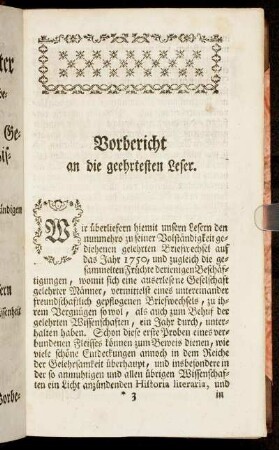 ter
be-
Ge-
is-
ndigen
ern
senheit
Vorbe-
Vorbericht
an die geehrtesten Leser.
Wir überliefern hiemit unsern Lesern den
nunmehro zu seiner Volständigkeit ge-
diehenen gelehrten Briefwechsel auf
das Jahr 1750, und zugleich die ge-
sammelten Früchte derienigen Beschäf-
tigungen, womit sich eine auserlesene Geselschaft
gelehrter Männer, vermittelst eines untereinander
freundschaftlich gepflogenen Briefwechsels, zu ih-
rem Vergnügen so wol, als auch zum Behuf der
gelehrten Wissenschaften, ein Jahr durch, unter-
halten haben. Schon diese erste Proben eines ver-
bundenen Fleisses können zum Beweis dienen, wie
viele schöne Entdeckungen annoch in dem Reiche
der Gelehrsamkeit überhaupt, und insbesondere in
der so anmuhtigen und allen übrigen Wissenschaf-
ten ein Licht anzündenden Historia literaria, und
* 3 in